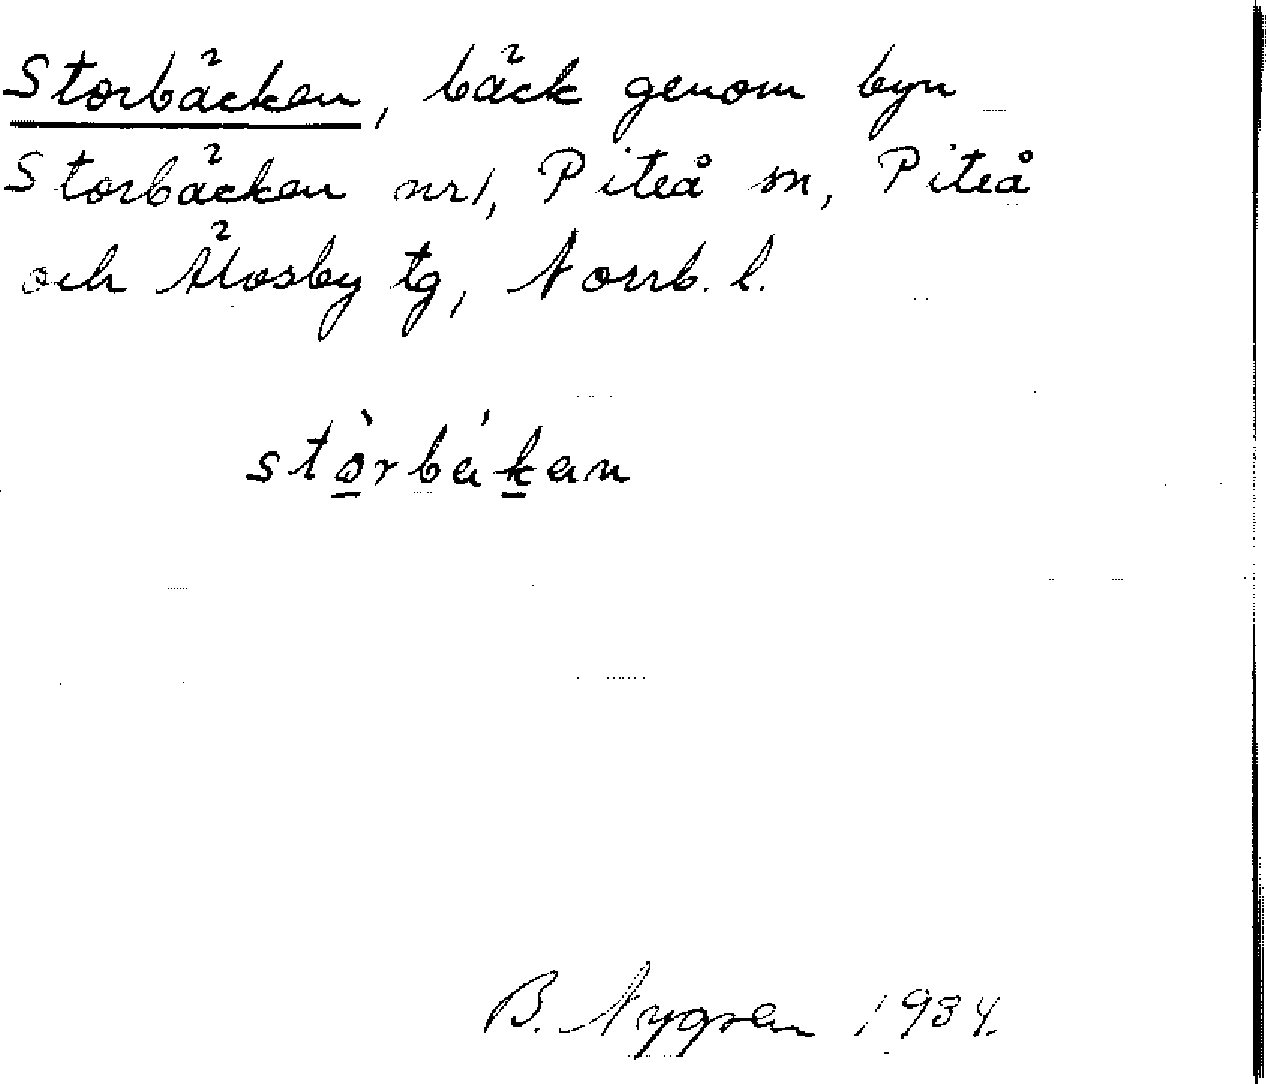 Storbäcken, bäck genom byn
Storbäcken nr 1, Piteå sn, Piteå
och Älvsby tg, Norrb. l.
stòrbákan
B. Nygren 1934.